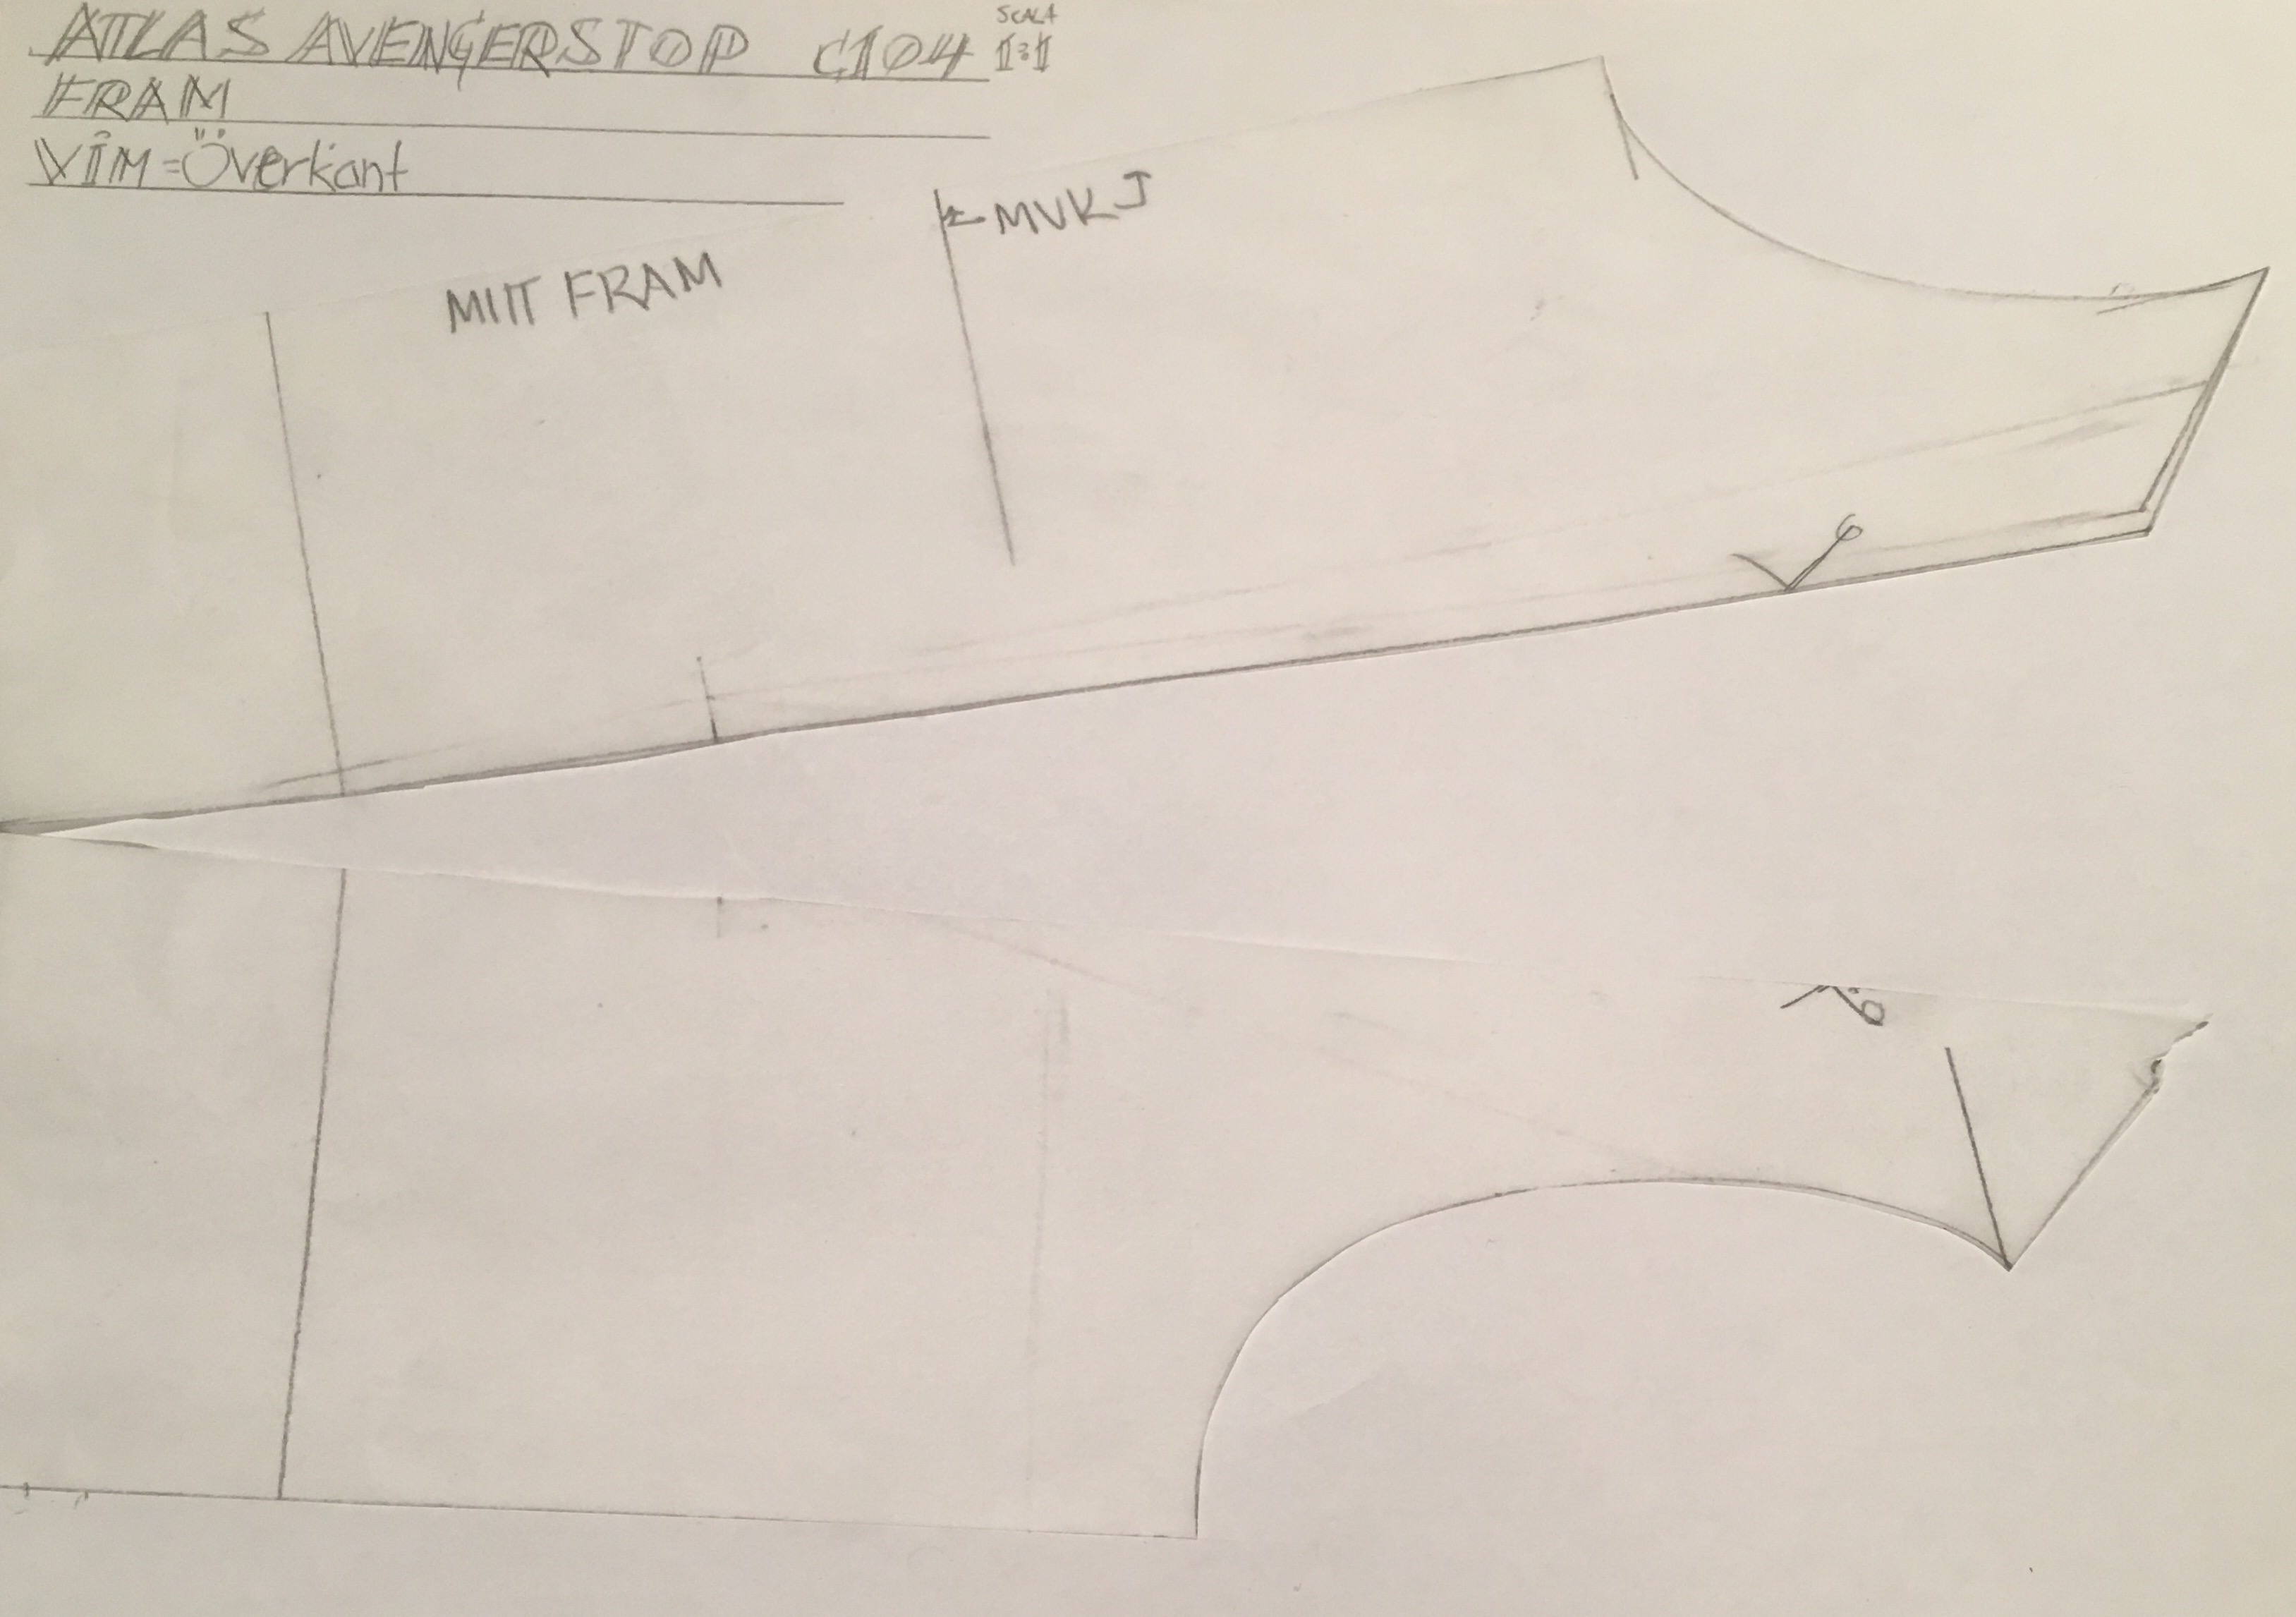 ATLAS AVENGERSTOP C104
SCALA
1:1
FRAM
VIM=Överkant
MVKJ
MITT FRAM
6
6